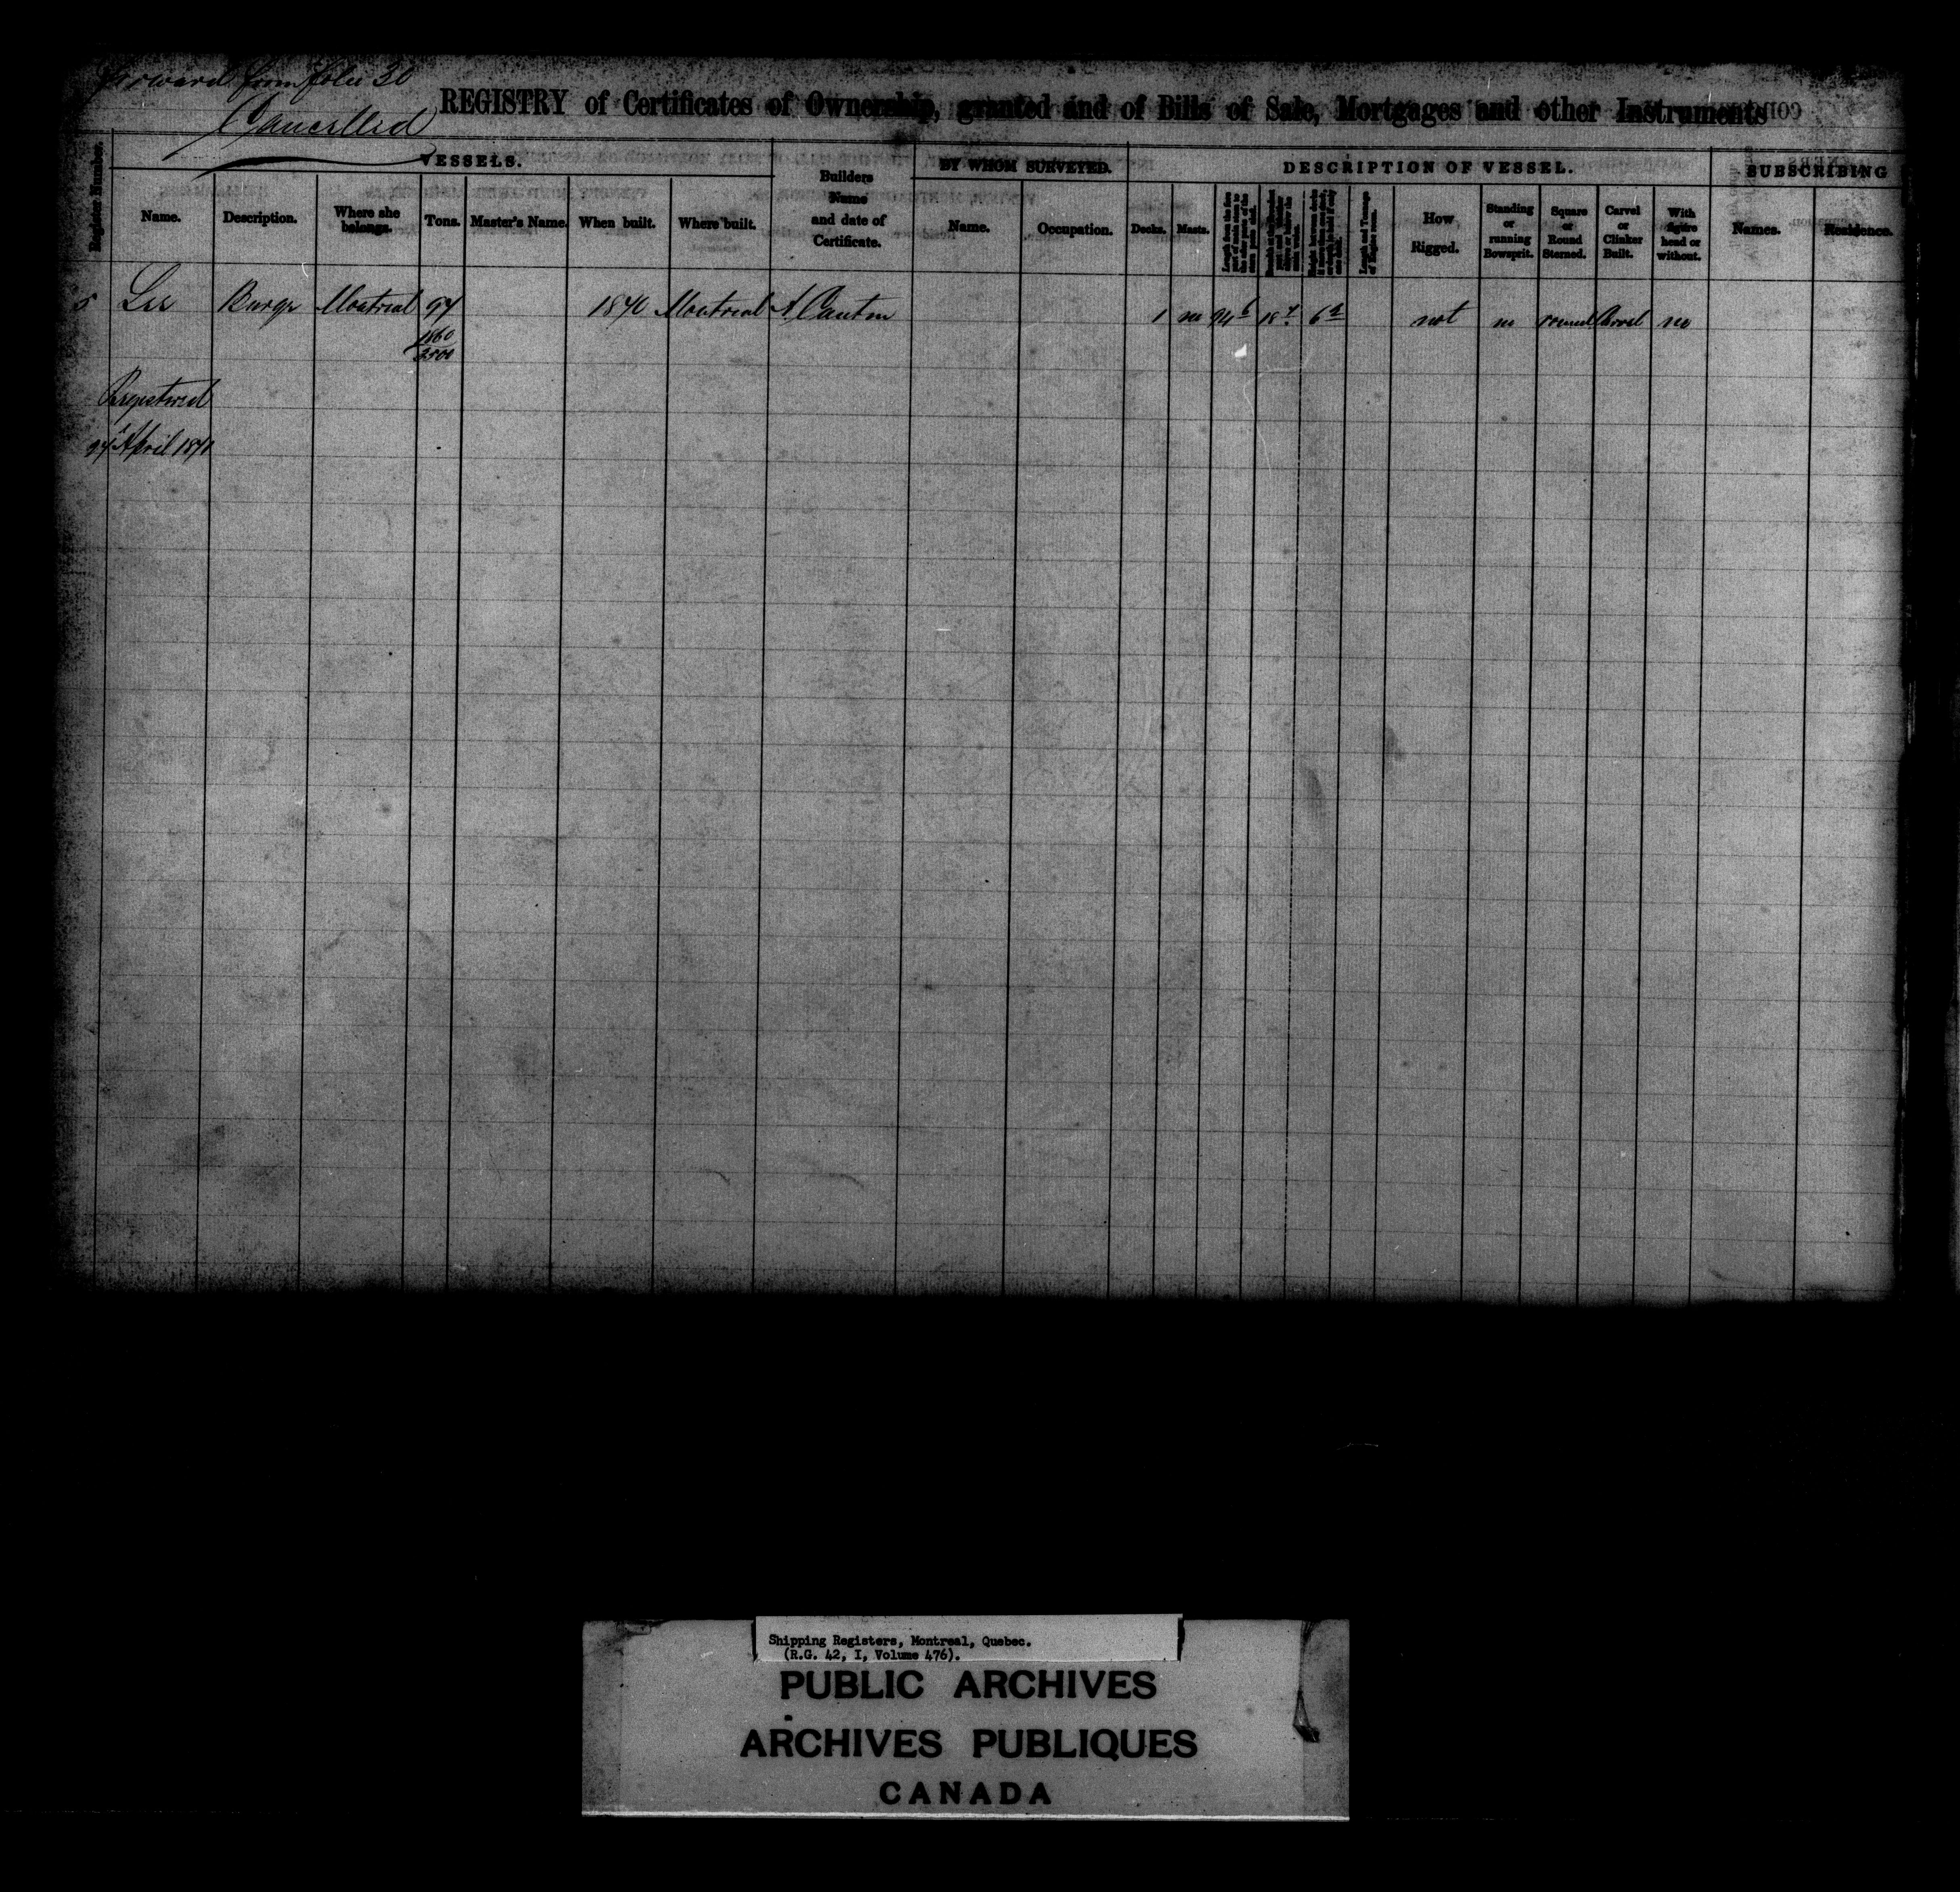 forward from folio 30
Cancelled
REGISTRY of Certificates of Ownership, granted and of Bills of Sale, Mortgages and other Instruments
Register Number.
VESSELS.
Name.
Description.
Where she belongs.
Tons.
Master's Name.
When built.
Where built.
Builders Name and date of Certificate.
BY WHOM SURVEYED.
Name.
Occupation.
DESCRIPTION OF VESSEL.
Decks.
Masts.
How Rigged.
Standing or running Bowsprit.
Square or Round Sterned.
Carvel or Clinker Built.
With figure head or without.
SUBSCRIBING
Names.
Residence.
5 Lee Barge Montreal 97 1840 Montreal A Cantin 1 no 94 6 18 4 6 2 not no round Carvel no
1860
3500
Registered
27 April 1841
Shipping Registers, Montreal, Quebec.
(R.G. 42, I, Volume 476).
PUBLIC ARCHIVES
ARCHIVES PUBLIQUES
CANADA